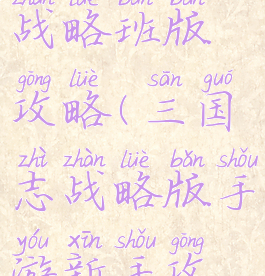 zhàn lüè bān bǎn
战略班版
gōng lüè sān guó
攻略(三国
zhì zhàn lüè bǎn shǒu
志战略版手
yóu xīn shǒu gōng
游新手攻